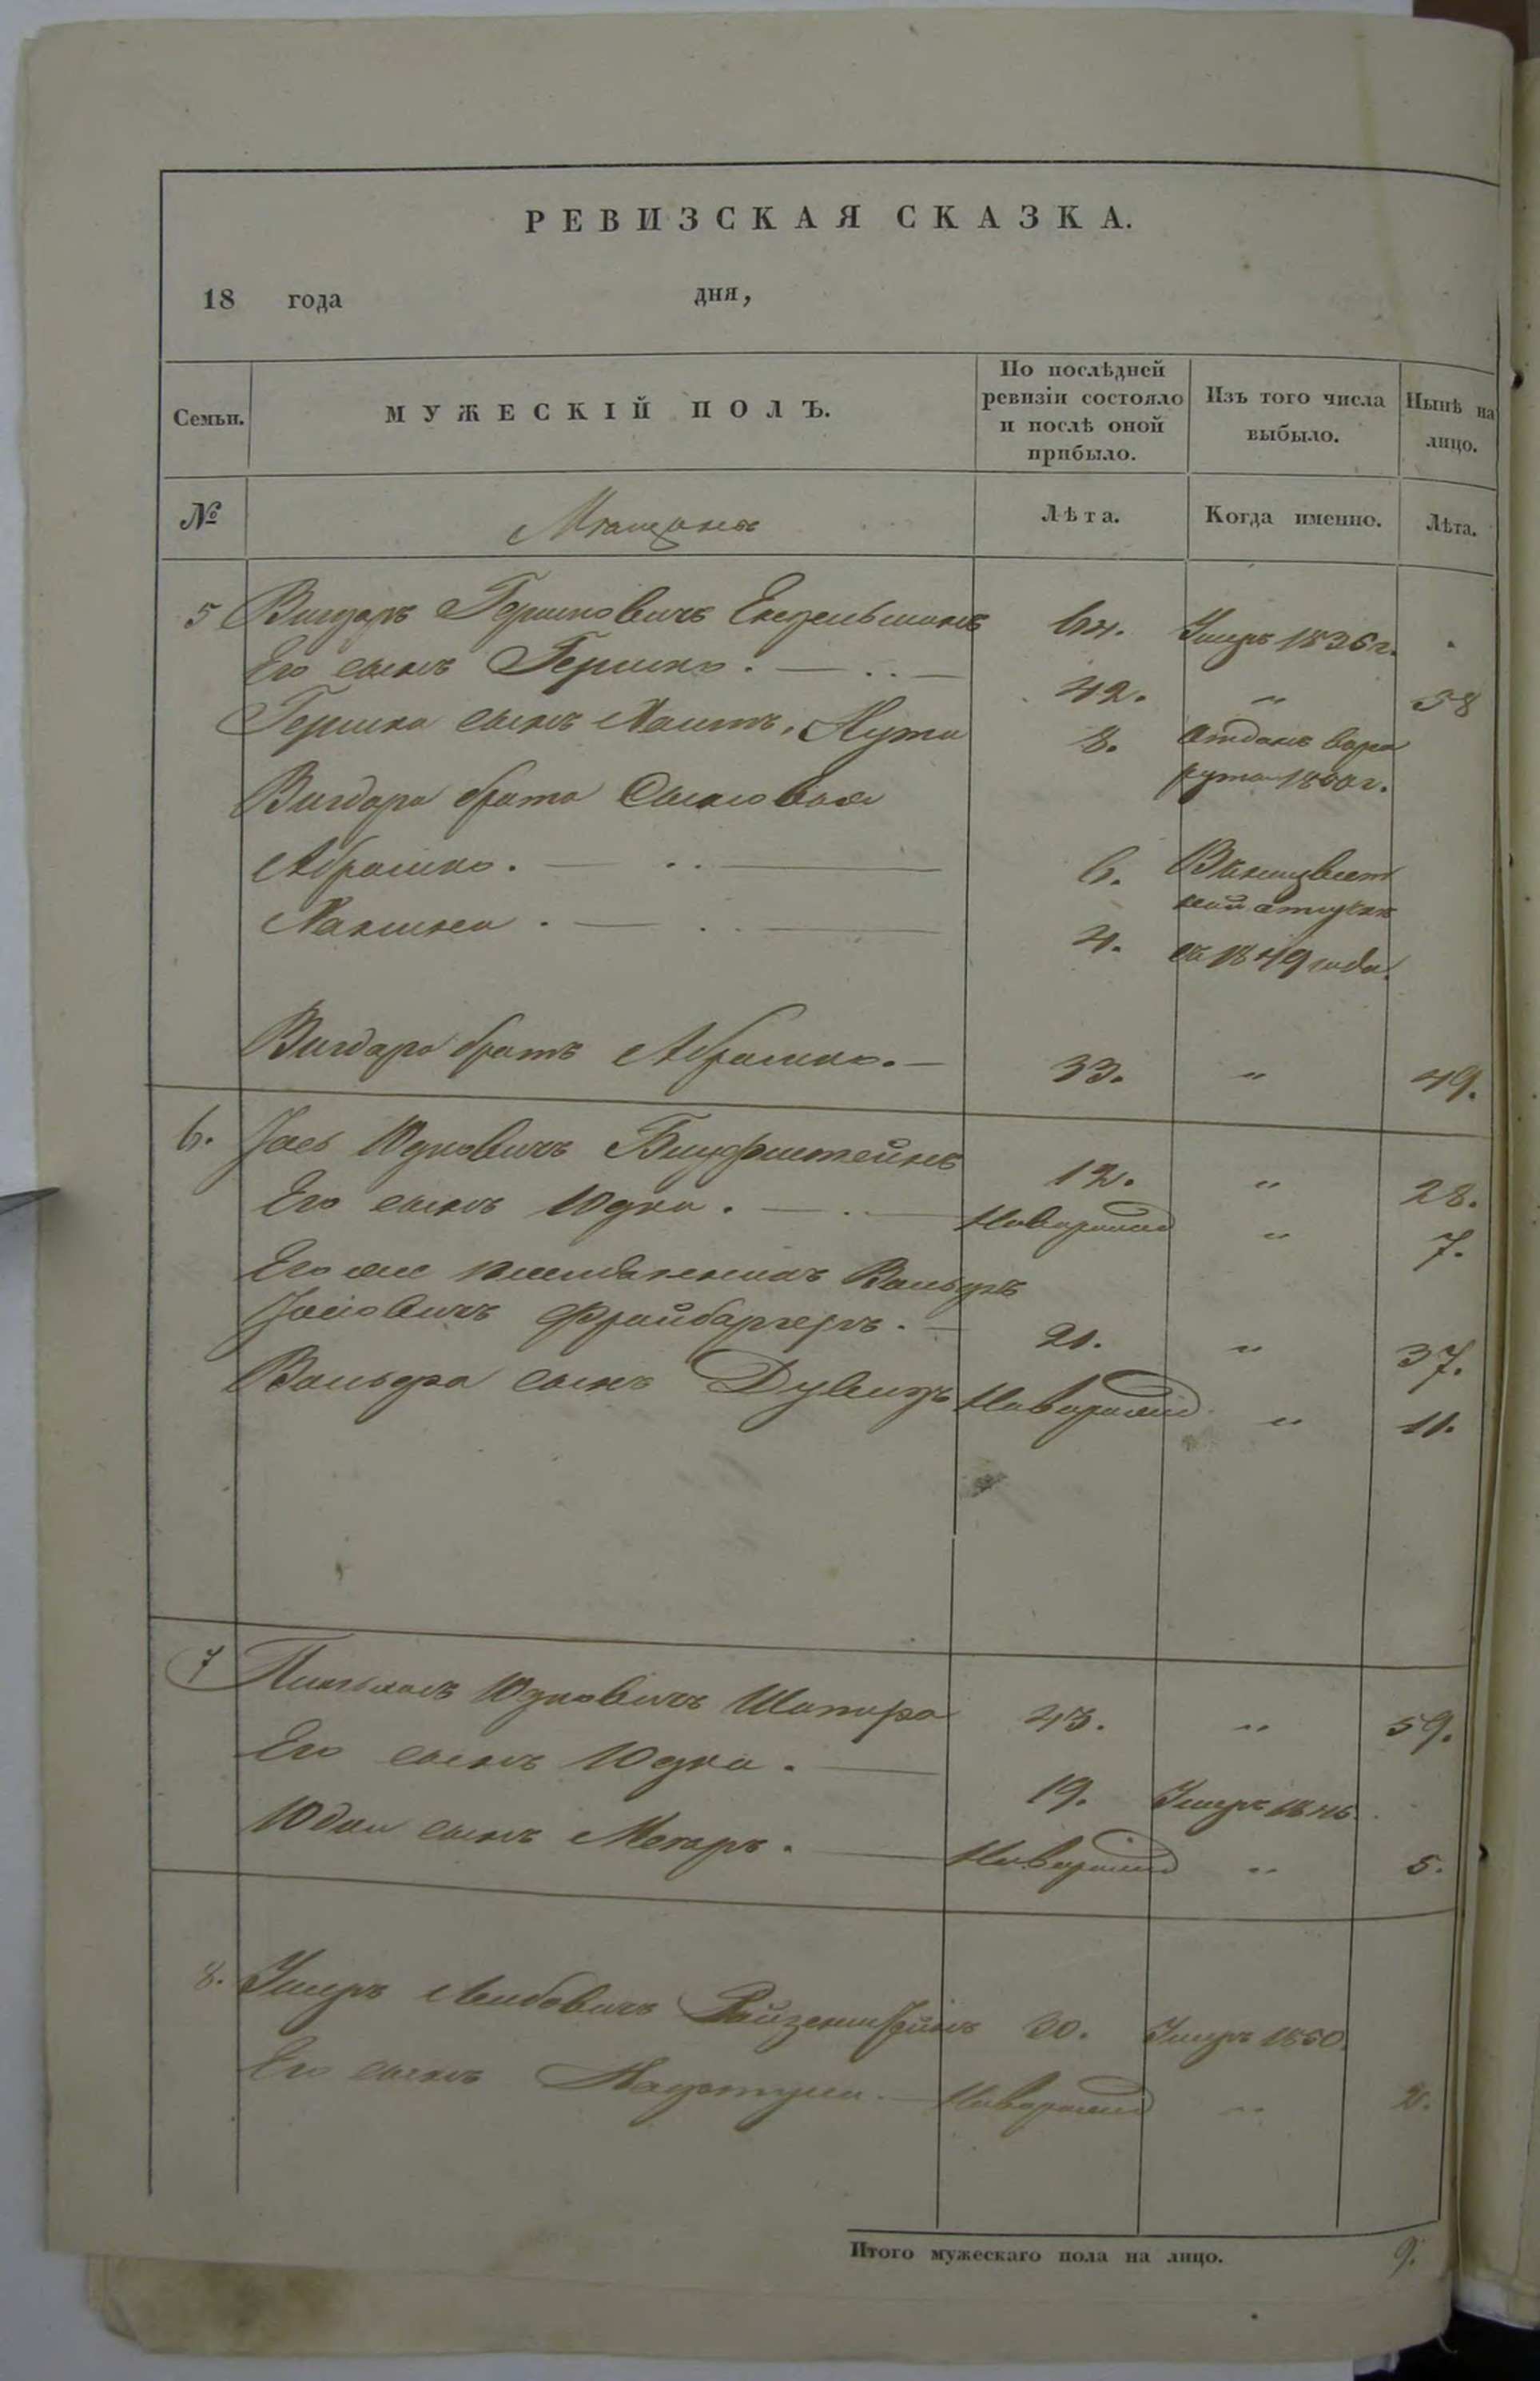 РЕВИЗСКАЯ СКАЗКА.
18 года дня,
Семьи. МУЖЕСКІЙ ПОЛЪ. По послѣдней ревизіи состояло и послѣ оной прибыло. Изъ того числа выбыло. Нынѣ на лицо.
№ Мѣщане Лѣта. Когда именно. Лѣта.
5 Вигдоръ Гершковичъ 64. Умеръ 1836 г.
Его сынъ Гершко. 42. „ 58
Гершка сынъ Нута 8. Отданъ
1850 г.
Вигдора брата Сыновья
Абрамко. 6.
4. съ 1849 года.
Вигдора братъ Абрамко. 33. „ 49.
6. Іось Юдковичъ 12. „ 28.
Его сынъ Юдка. Новорожд „ 7.
Его же племянникъ Вольфъ
Іосіовичъ Фрайбаргеръ. 21. „ 37.
Вольфа сынъ Дувидъ Новорожд „ 11.
7 Юдковичъ Шапира 43. „ 59.
Его сынъ Юдка. 19. Умеръ 1846.
Юдки сынъ Мееръ. Новорожд „ 5.
8. Лейбовичъ 30. Умеръ 1850.
Его сынъ Новорожд „ 2.
Итого мужескаго пола на лицо. 9.